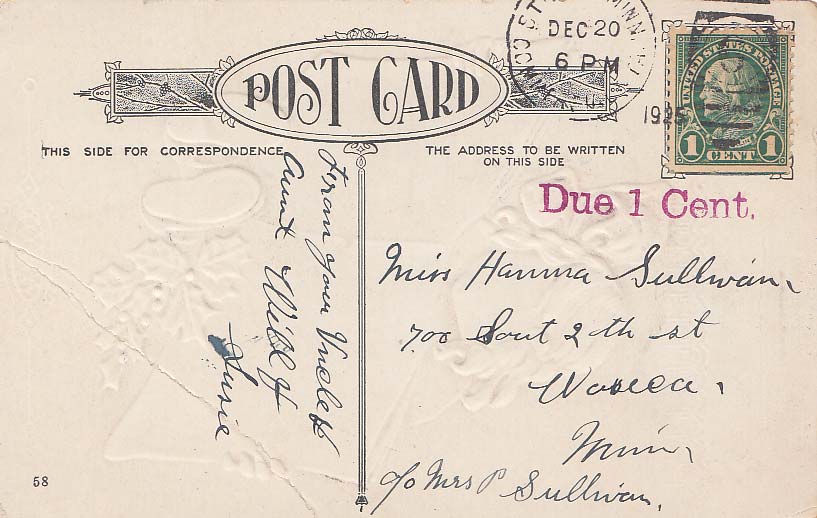 POST CARD
THIS SIDE FOR CORRESPONDENCE
THE ADDRESS TO BE WRITTEN
ON THIS SIDE
MINN.
DEC 20
6 PM
1925
UNITED STATES POSTAGE
1 CENT 1
Due 1 Cent.
From your Uncle &
Aunt Will &
Susie
Miss Hanna Sullivan,
700 Sout 2th st
Waseca,
Minn,
c/o Mrs P Sullivan,
58